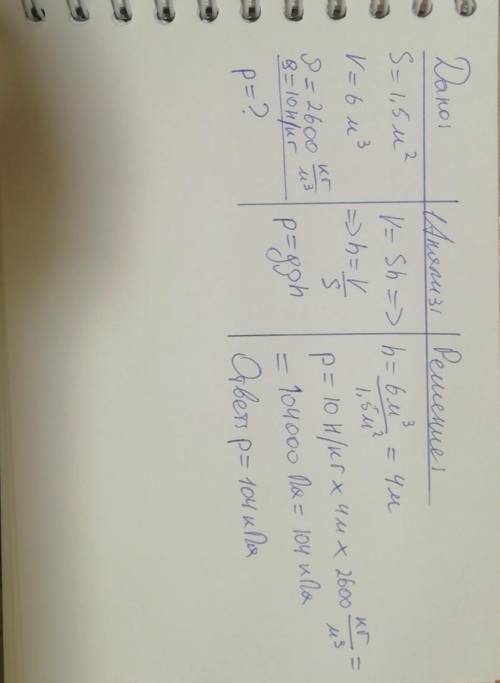 Дано:
S = 1,5 м²
V = 6 м³
ρ = 2600 кг/м³
g = 10 Н/кг
p = ?
Анализ:
V = Sh =>
=> h = V/S
p = ρgh
Решение:
h = 6 м³/1,5 м² = 4 м
p = 10 Н/кг × 4 м × 2600 кг/м³ =
= 104000 Па = 104 кПа
Ответ: p = 104 кПа